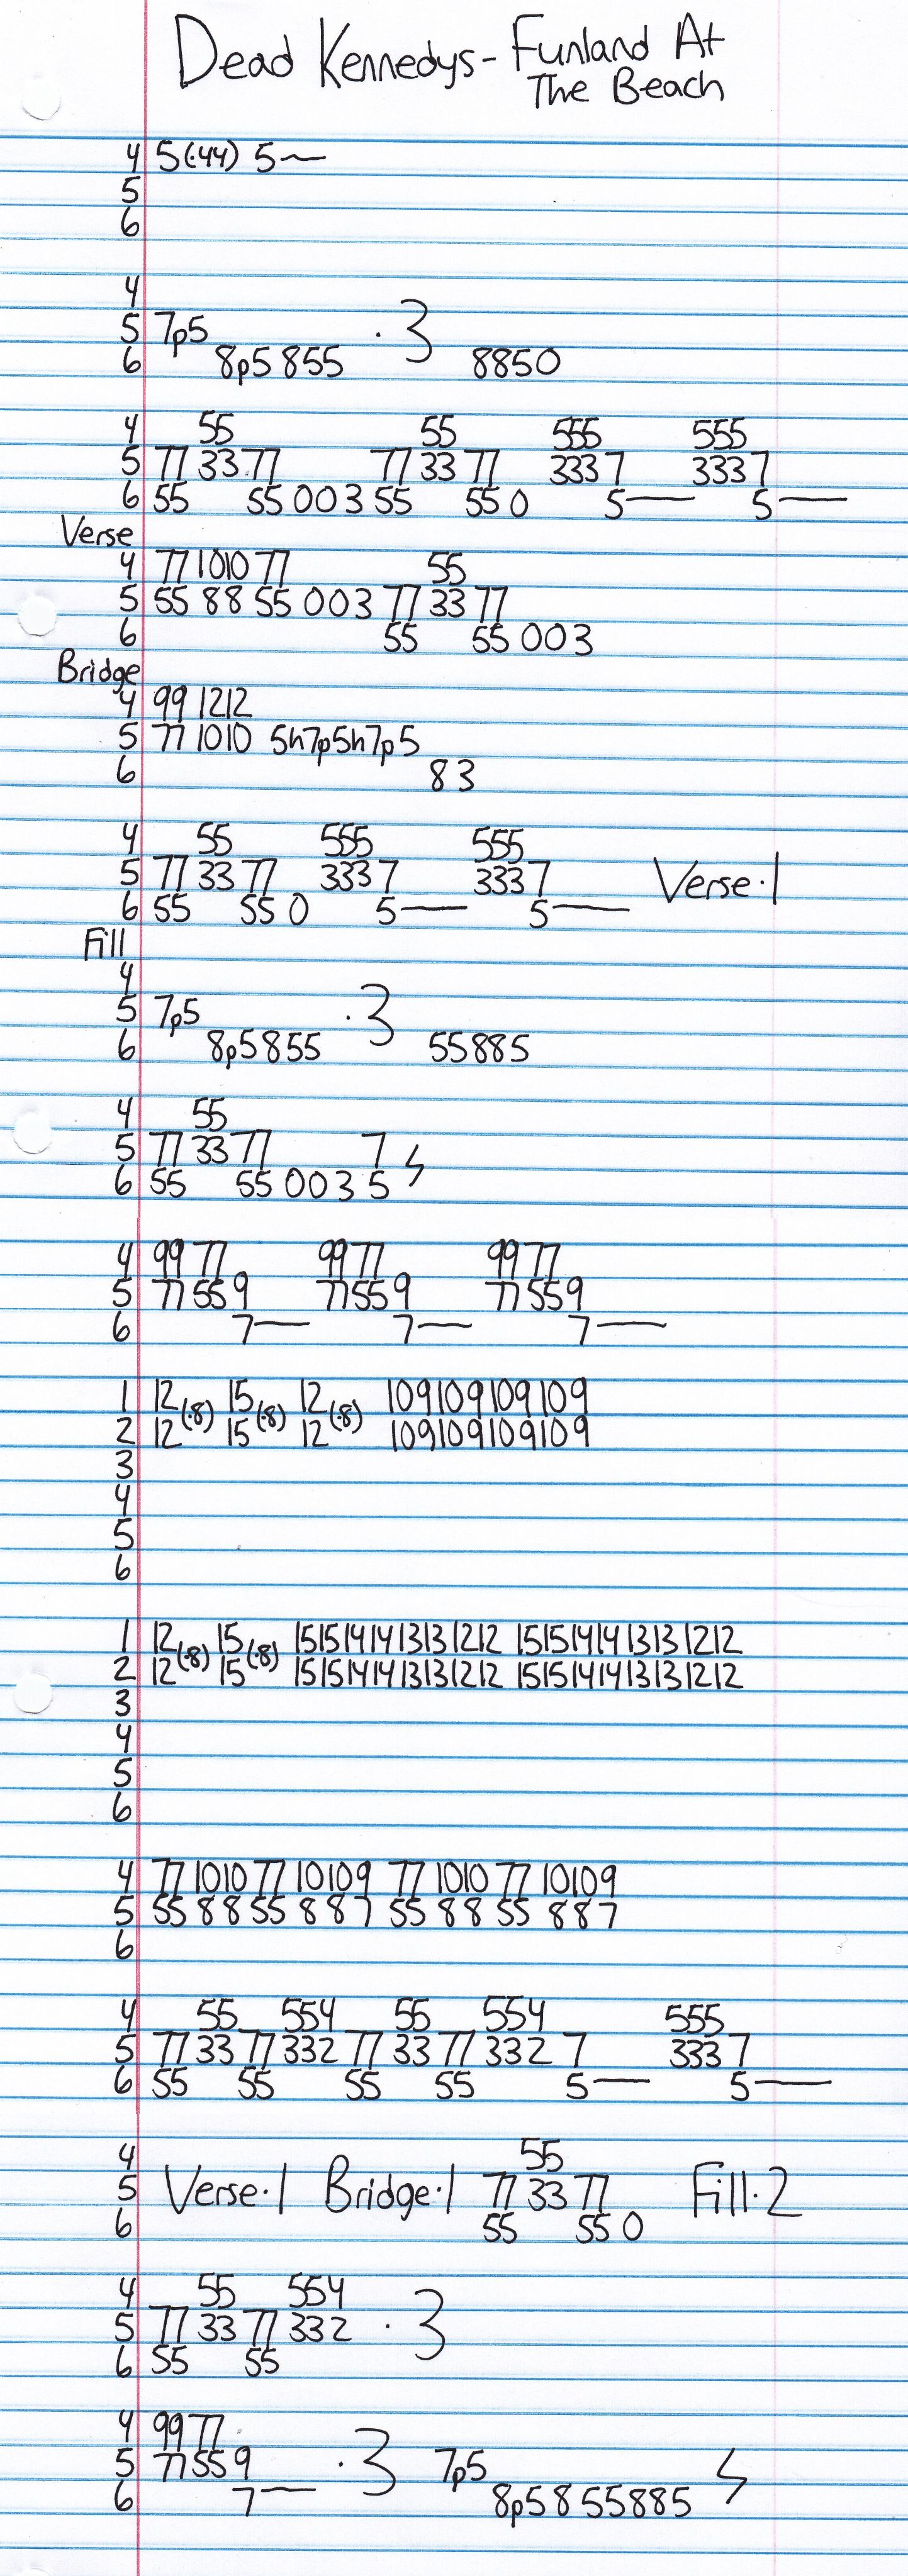 Dead Kennedys - Funland At
The Beach
4 5(·44) 5~
5
6
4
5 7p5 · 3
6 8p5 855 8850
4 55 55 555 555
5 77 33 77 77 33 77 333 7 333 7
6 55 55 003 55 55 0 5— 5—
Verse
4 77 1010 77 55
5 55 88 55 003 77 33 77
6 55 55 003
Bridge
4 99 1212
5 77 1010 5h7p5h7p5
6 83
4 55 555 555
5 77 33 77 333 7 333 7 Verse·1
6 55 55 0 5— 5—
Fill
4
5 7p5 · 3
6 8p5855 55885
4 55
5 77 33 77 7
6 55 55 003 5
4 99 77 99 77 99 77
5 77 55 9 77 55 9 77 55 9
6 7— 7— 7—
1 12 (·8) 15 (·8) 12 (·8) 109109109109
2 12 15 12 109109109109
3
4
5
6
1 12 (·8) 15 (·8) 1515141413131212 1515141413131212
2 12 15 1515141413131212 1515141413131212
3
4
5
6
4 77 1010 77 10109 77 1010 77 10109
5 55 88 55 887 55 88 55 887
6
4 55 554 55 554 555
5 77 33 77 332 77 33 77 332 7 333 7
6 55 55 55 55 5— 5—
4 55
5 Verse·1 Bridge·1 77 33 77 Fill·2
6 55 55 0
4 55 554
5 77 33 77 332 · 3
6 55 55
4 99 77
5 77 55 9 · 3 7p5
6 7— 8p5855885